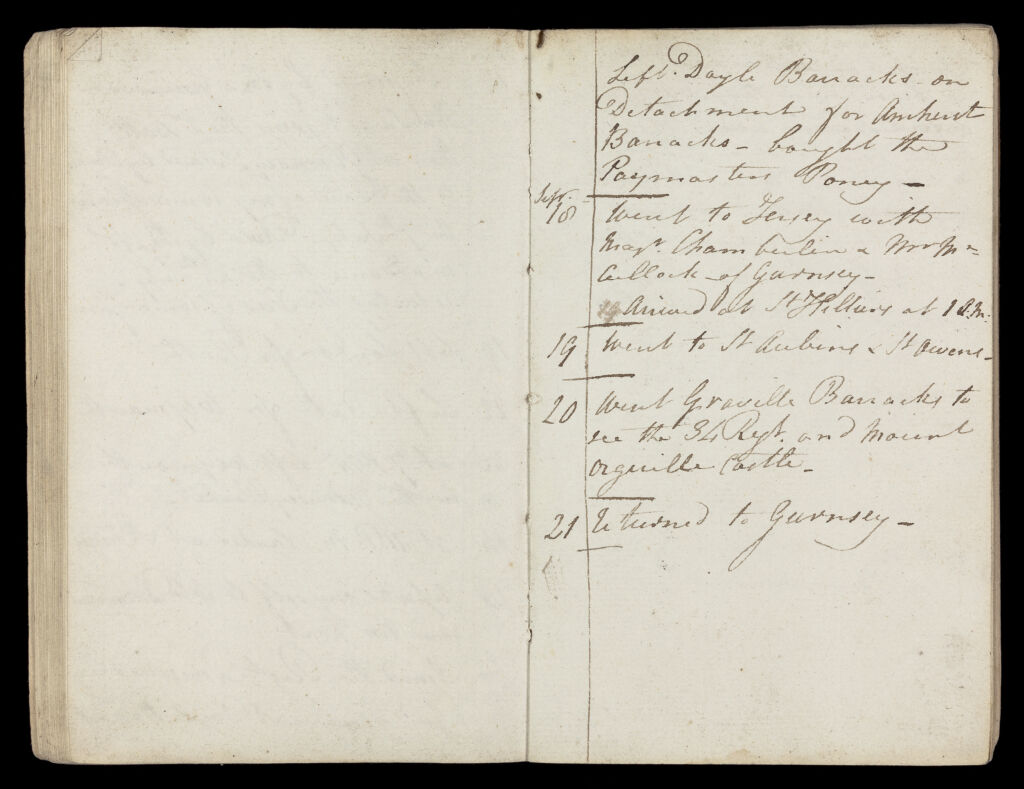 Left Doyle Barracks on
Detachment for Amherst
Barracks - bought the
Paymasters Poney -
Sept. 18 Went to Jersey with
Majr. Chamberlin & Mr Mc=
Cullock - of Gurnsey -
Arrived at St Helliers at 1 A.M.
19 Went to St Aubins & St Owens -
20 Went Graville Barracks to
see the 34 Regt. and Mount
Orguille Castle -
21 Returned to Gurnsey -